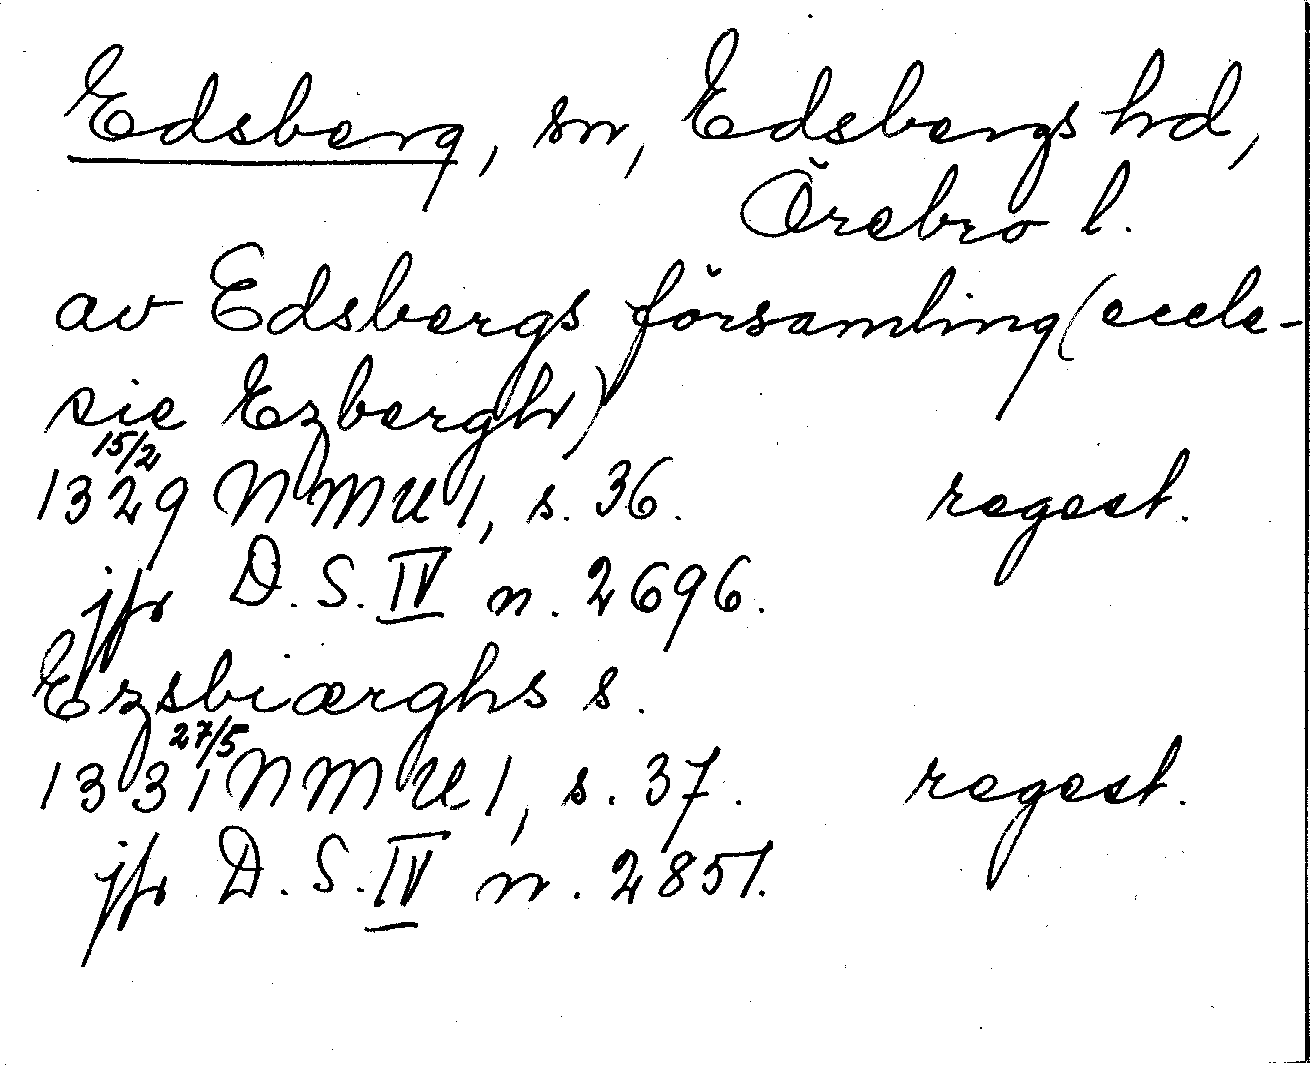 Edsberg, sn, Edsbergs hd,
Örebro l.
av Edsbergs församling (eccle-
sie Ezbergh)
15/2
1329 NMU 1, s. 36. regest.
jfr D. S. IV n. 2696.
Ezsbiærghs s.
27/5
1331 NMU 1, s. 37. regest.
jfr D. S. IV n. 2851.